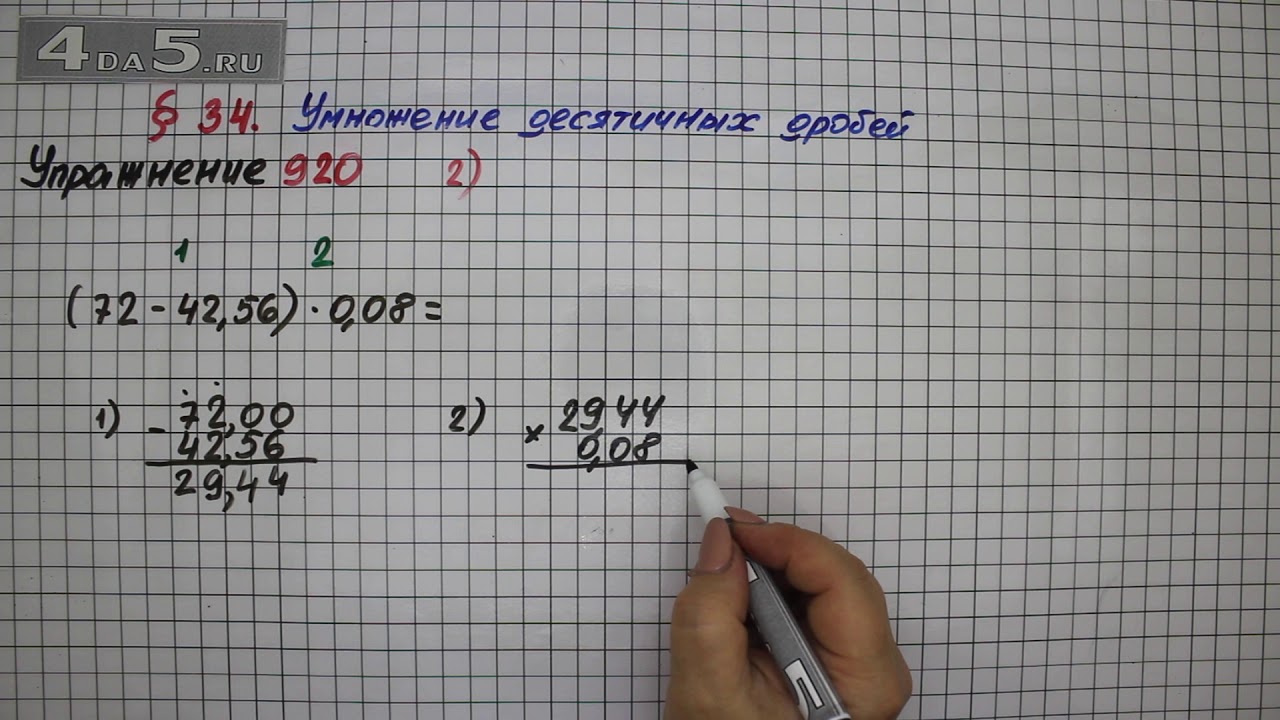 4DA5.RU
§ 34. Умножение десятичных дробей
Упражнение 920 2)
1 2
(72 - 42,56) · 0,08 =
1) - 72,00
42,56
29,44
2) × 2944
0,08